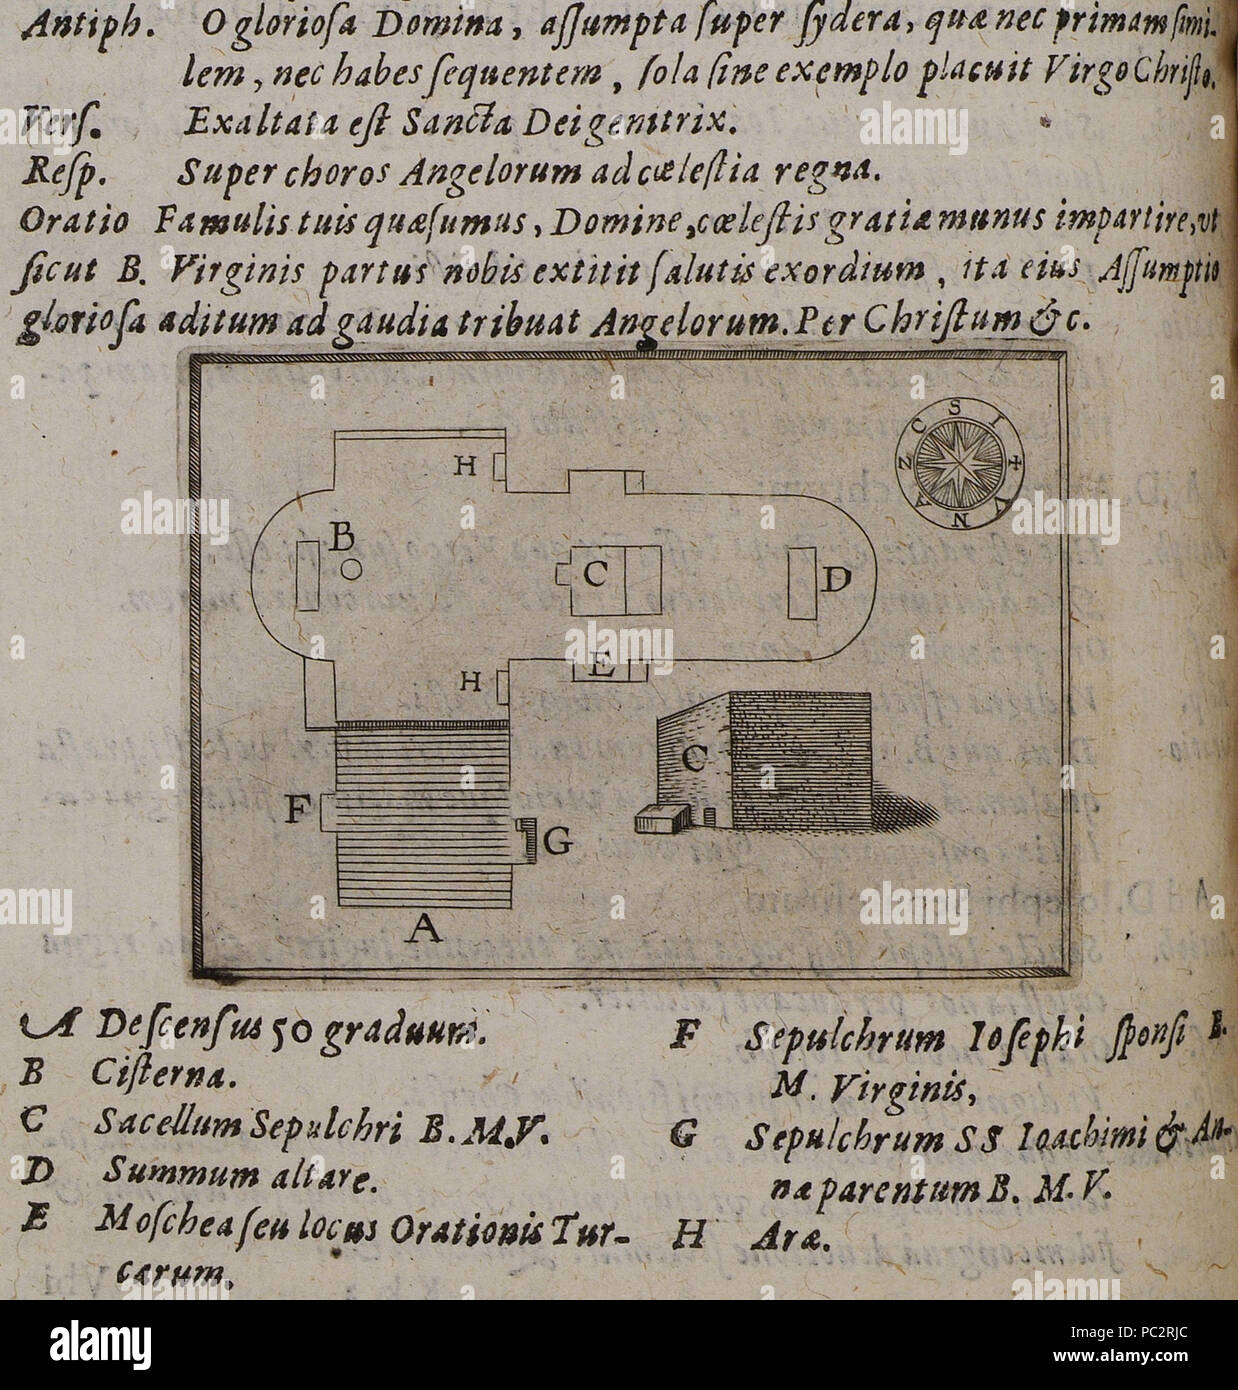 Antiph. O glorioſa Domina, aſſumpta ſuper ſydera, quæ nec primam ſimi-
lem, nec habes ſequentem, ſola ſine exemplo placuit Virgo Chriſto.
Verſ. Exaltata eſt Sancta Dei genitrix.
Reſp. Super choros Angelorum ad cœleſtia regna.
Oratio Famulis tuis quæſumus, Domine, cœleſtis gratiæ munus impartire, ut
ſicut B. Virginis partus nobis extitit ſalutis exordium, ita eius Aſſumptio
glorioſa aditum ad gaudia tribuat Angelorum. Per Chriſtum &c.
S I + V N A Z C
H
B
C
D
H
E
C
F
G
A
A Deſcenſus 50 graduum.
B Ciſterna.
C Sacellum Sepulchri B. M.V.
D Summum altare.
E Moſchea ſeu locus Orationis Tur-
carum.
F Sepulchrum Ioſephi ſponſi B.
M. Virginis,
G Sepulchrum SS Ioachimi & An-
næ parentum B. M. V.
H Aræ.
alamy
Image ID: PC2RJC
www.alamy.com